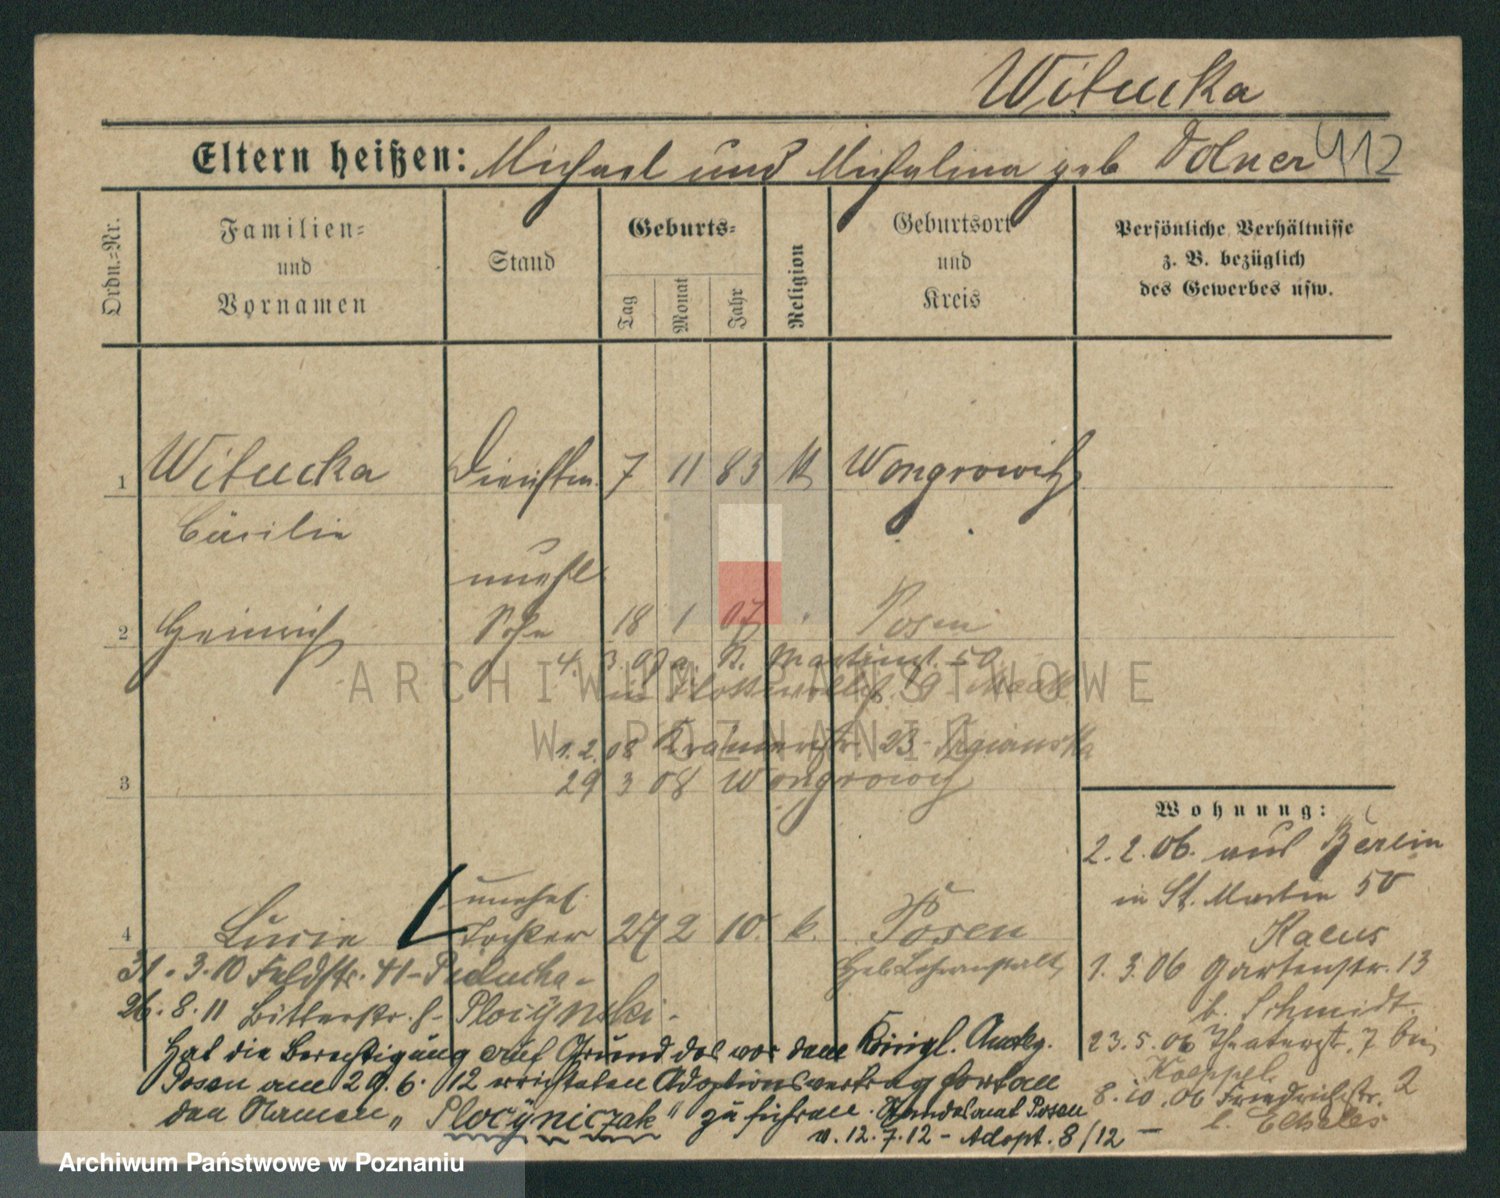 Witucka
Eltern heißen: Michael und Michalina geb Dolner 412
Ordn.=Nr.
Familien=
und
Vornamen
Stand
Geburts=
Tag
Monat
Jahr
Religion
Geburtsort
und
Kreis
Persönliche Verhältnisse
z. B. bezüglich
des Gewerbes usw.
1 Witucka Dienstm. 7 11 83 k Wongrowitz
Cäcilie
unehl
2 Heinrich Sohn 18 1 07 Posen
4. 3. 07 St. Martinst. 50
1. 2. 08 Krämerstr 23
3 29 3 08 Wongrowitz
Wohnung:
2. 2. 06. aus Berlin
in St. Martin 50
Kaeus
1. 3. 06 Gartenstr. 13
b. Schmidt
23. 5. 06 Theaterst. 7 bei
Koeppel
8. 10. 06 Friedrichstr. 2
unehel
4 Lucie Tochter 27 2 10. k. Posen
Heb. Lehranstalt
31. 3. 10 Feldstr. 41 -
26. 8. 11 Bitterstr. 8 - Plocynski -
Hat die Berechtigung auf Grund des vor dem Königl. Amtsg.
Posen am 29. 6. 12 errichteten Adoptionsvertrag fortan
den Namen „Plocyniczak" zu führen. Standesamt Posen
v. 12. 7. 12 - Adopt. 8/12 -
ARCHIWUM PAŃSTWOWE
W POZNANIU
Archiwum Państwowe w Poznaniu